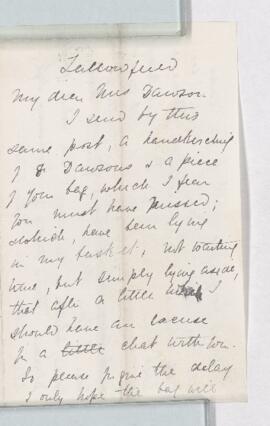 Fallowfield
My dear Mrs Dawson
I send by this
same post, a handkerchief
of Dr Dawsons & a piece
of your bag, which I fear
you must have missed;
which, have been lying
in my basket, not wanting
time, but simply lying aside,
that after a little I
should have an excuse
for a little chat with you.
So please forgive the delay
I only hope the bag will